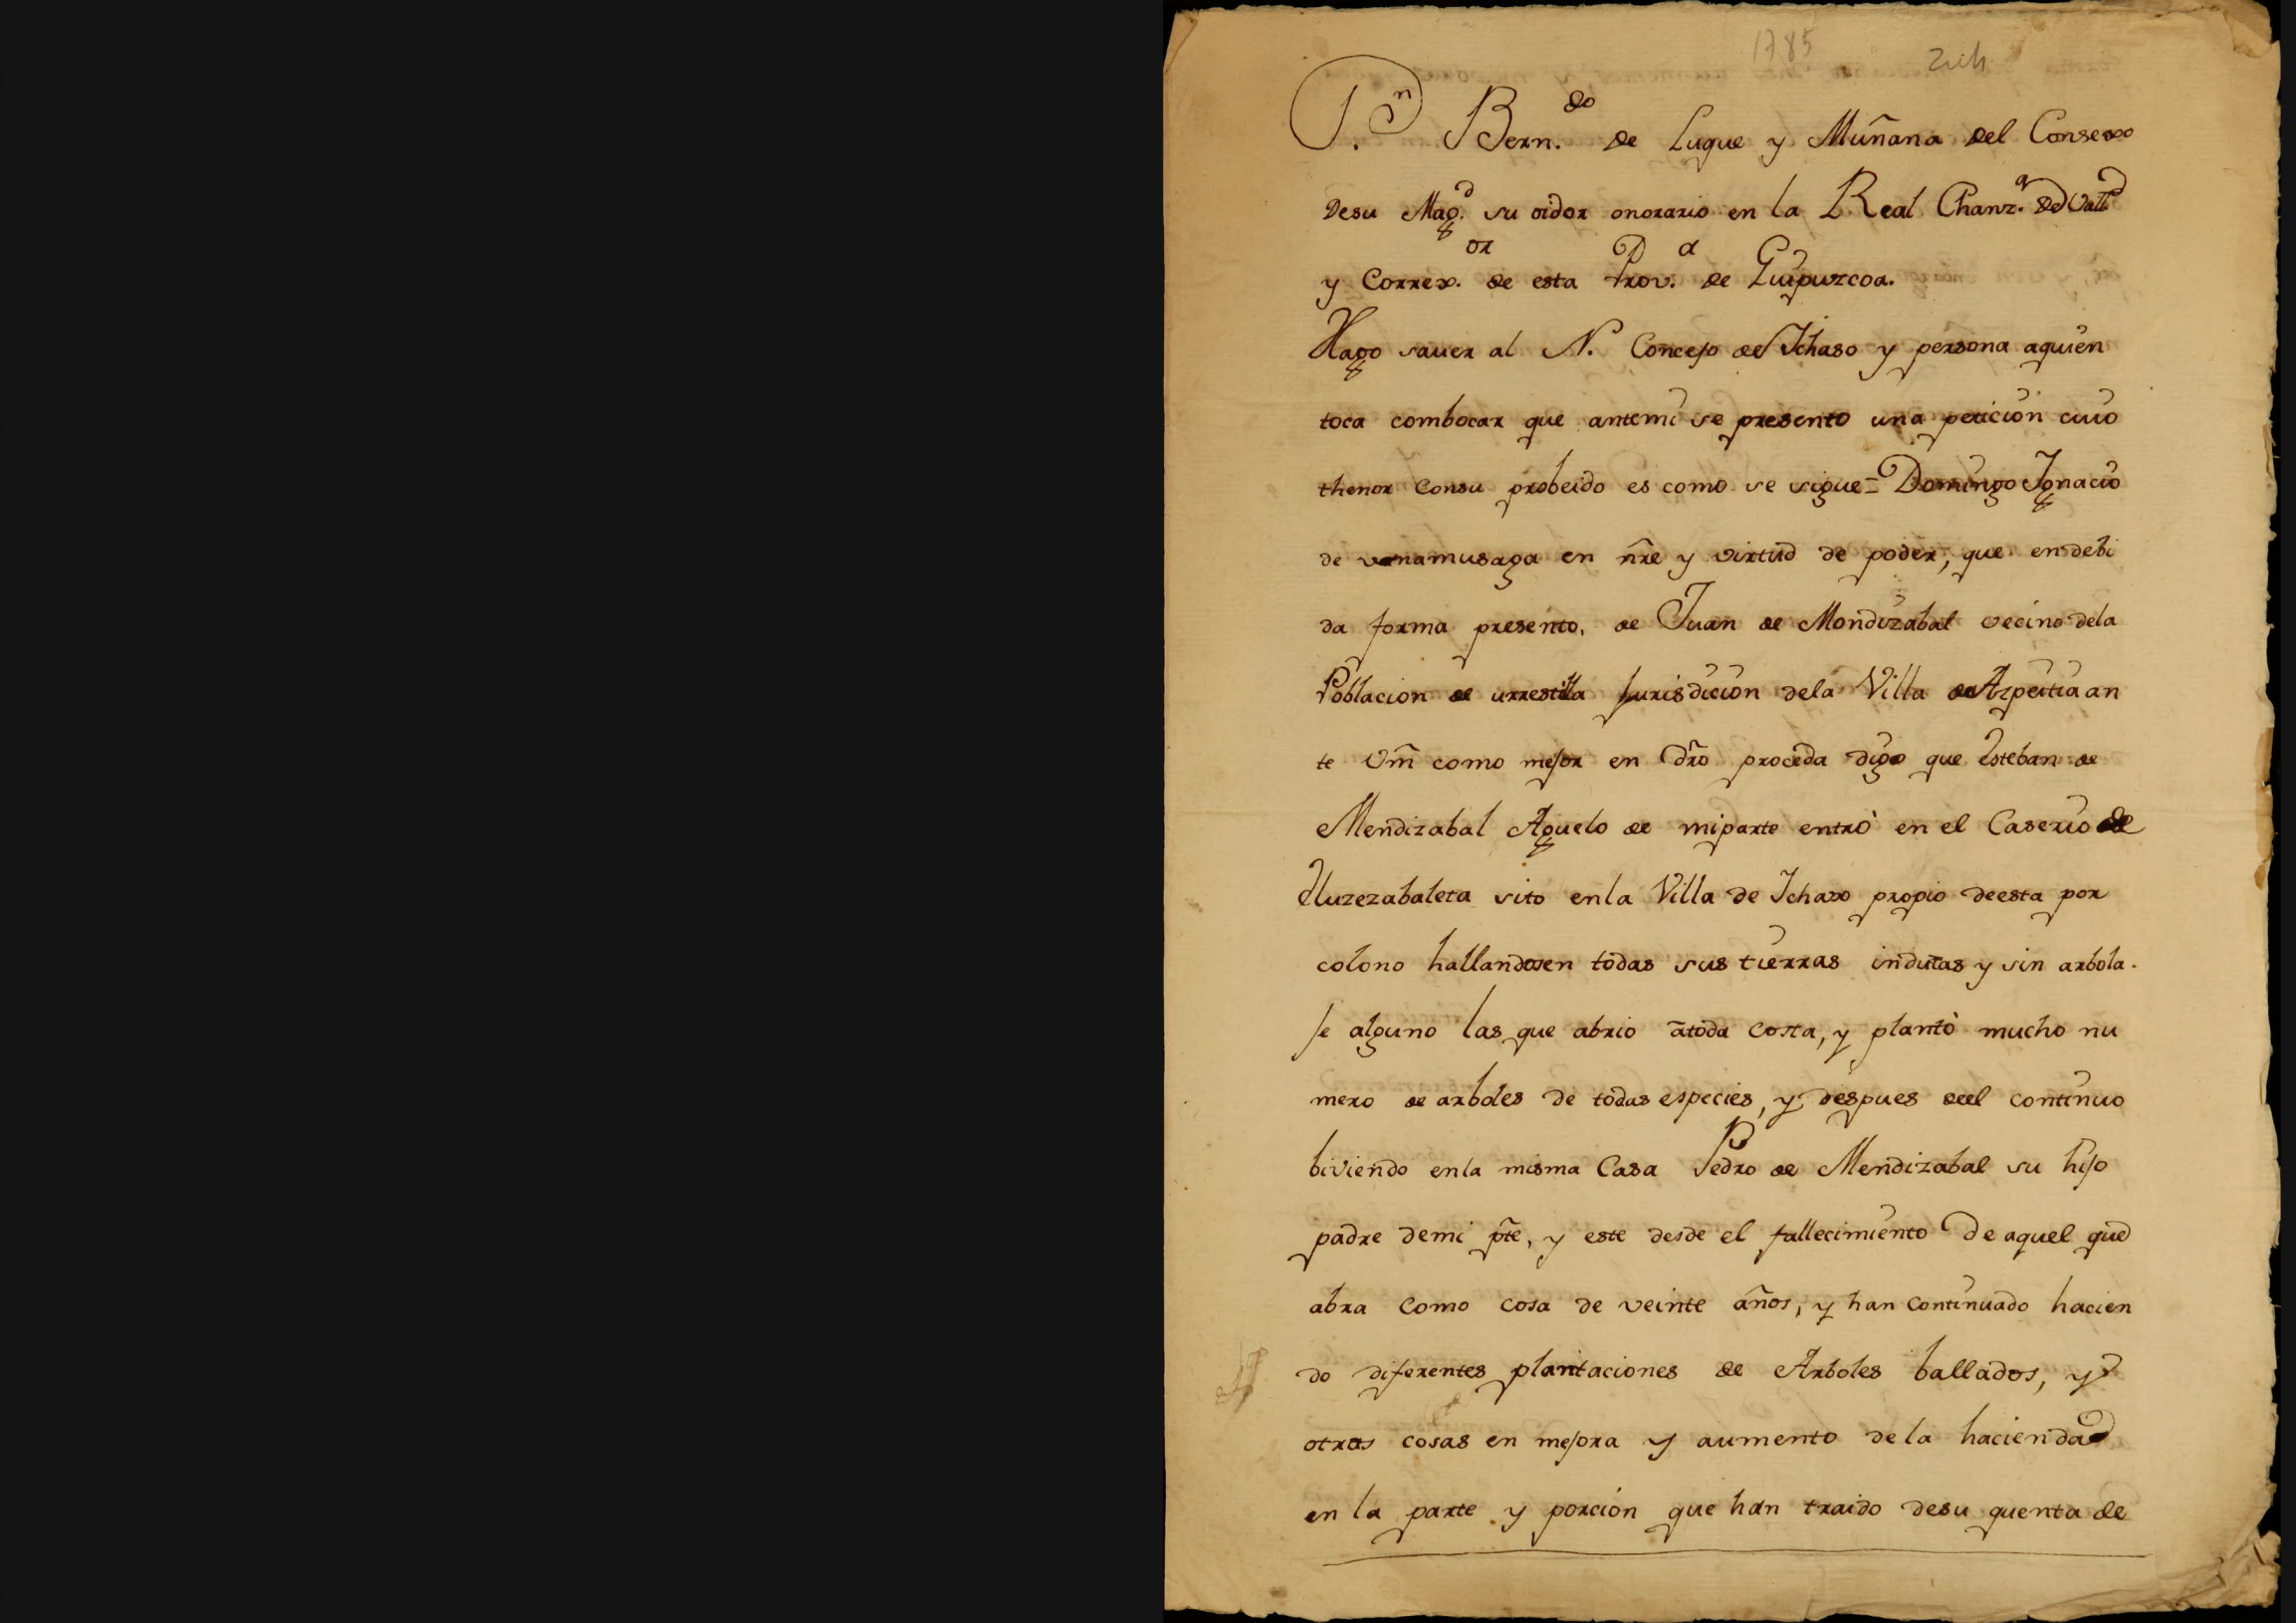 1785
D.n Bern.do de Luque y Muñana del Consexo
desu Mag.d su oidor onorario en la Real Chanz.a de Vall.d
y Correx.or de esta Prov.a de Guipuzcoa.
Hago sauer al N. Concejo de Ichaso y persona aquien
toca combocar que antemi se presento una peticion cuio
thenor consu probeido es como se sigue = Domingo Ignacio
de vanamusaga en nr̃e y virtud de poder, que en debi
da forma presento, de Juan de Mondizabal vecino dela
Poblacion de urrestilla Jurisdicion dela Villa de Azpeitia an
te Vm̃ como mejor en dr̃o proceda digo que Esteban de
Mendizabal Aguelo de miparte entró en el Caserio de
Uzezabaleta sito enla Villa de Ichaso propio deesta por
colono hallandosen todas sus tierras indutas y sin arbola.
je alguno las que abrio atoda costa, y plantò mucho nu
mero de arboles de todas especies, y despues deel continuo
biviendo enla misma Casa Pedro de Mendizabal su hijo
padre demi pt̃e, y este desde el fallecimiento de aquel que
abra como cosa de veinte años, y han continuado hacien
do diferentes plantaciones de Arboles ballados, y
otras cosas en mejora y aumento de la hacienda
en la parte y porción que han traido desu quenta de